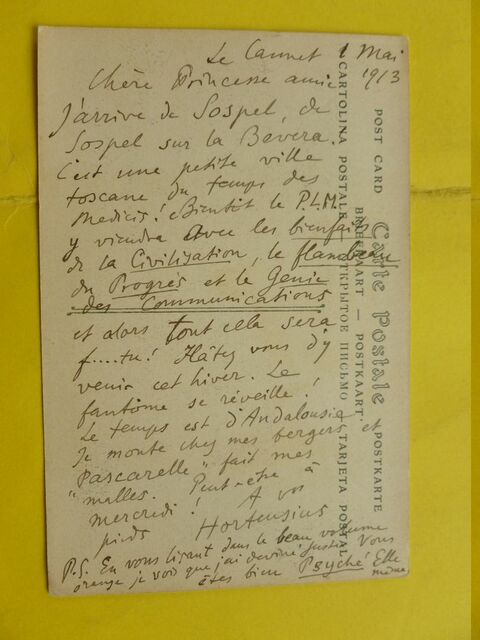 Le Cannet 1 Mai
1913
Chère Princesse amie
J'arrive de Sospel, de
Sospel sur la Bevera.
C'est une petite ville
toscane du temps des
Medicis! Bientôt le P.L.M.
y viendra avec les bienfaits
de la Civilization, le flambeau
du Progrès et le Génie
des Communications
et alors tout cela sera
f....tu! Hâtez vous d'y
venir cet hiver. Le
fantôme se réveille!
Le temps est d'Andalousie et
Je monte chez mes bergers.
"Pascarelle" fait mes
malles. Peut-être à
mercredi! A vos
pieds Hortensius
P.S. En vous lisant dans le beau volume
orange je vois que j'ai deviné juste. Vous
êtes bien Psyché Elle
même
POST CARD
CARTOLINA POSTALE
BRIEFKAART — POSTKAART
Carte Postale
ОТКРЫТОЕ ПИСЬМО
POSTKARTE
TARJETA POSTAL